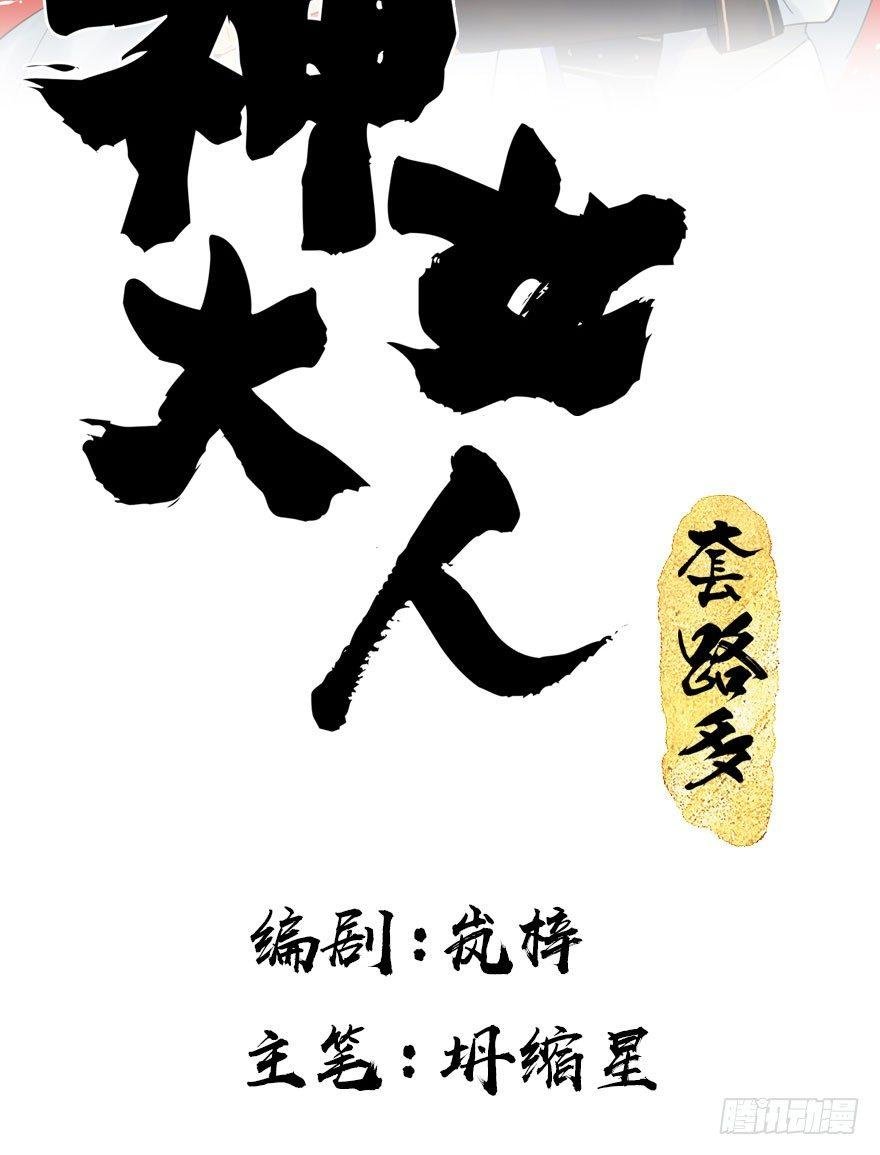 神女
大人
套路多
编剧：岚梓
主笔：坍缩星
腾讯动漫